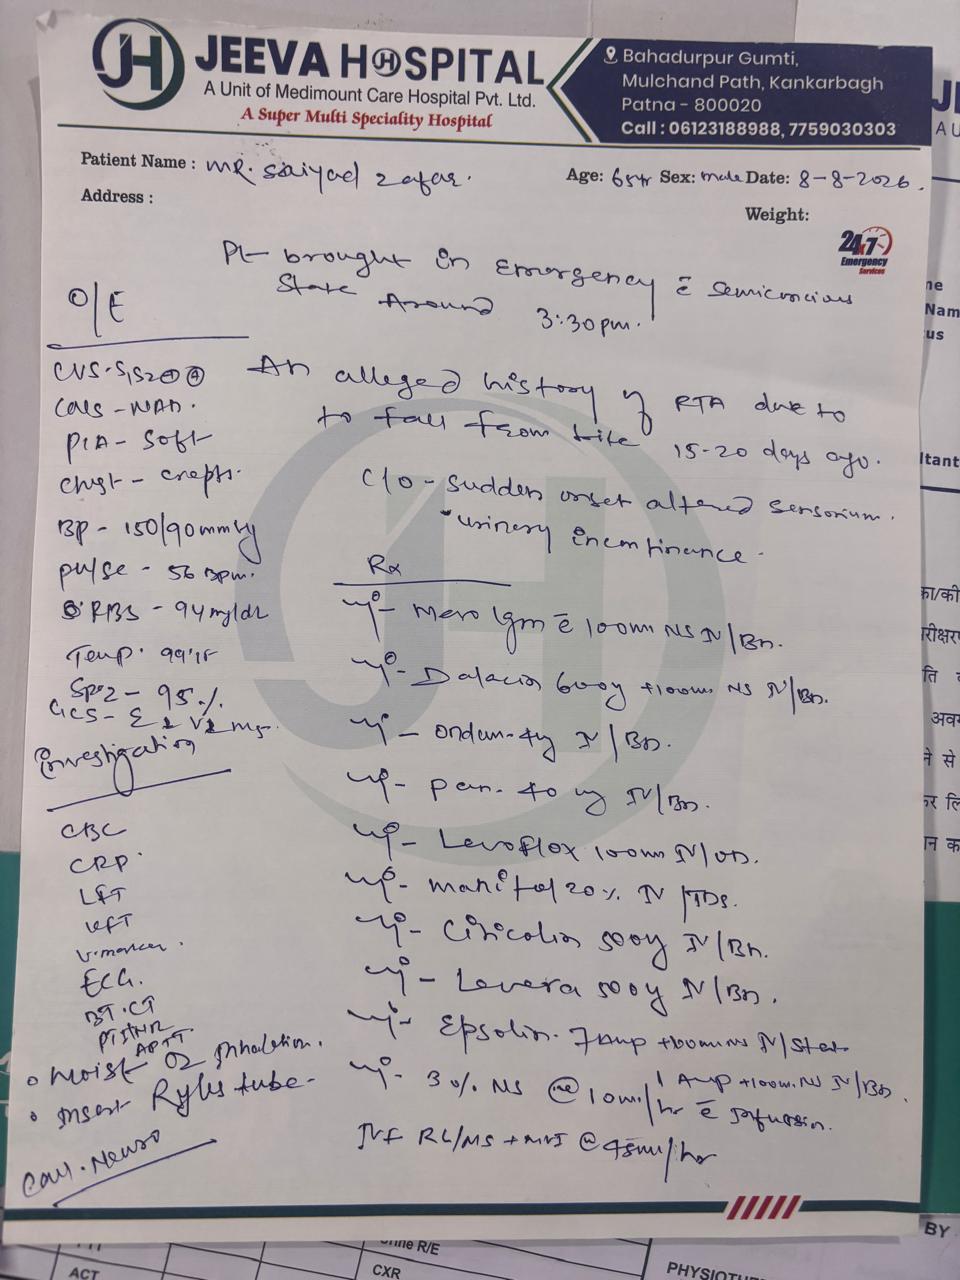 JEEVA HOSPITAL
A Unit of Medimount Care Hospital Pvt. Ltd.
A Super Multi Speciality Hospital
Bahadurpur Gumti,
Mulchand Path, Kankarbagh
Patna - 800020
Call : 06123188988, 7759030303
Patient Name : MR. Saiyad Zafar.
Age: 65yr Sex: male Date: 8-8-2026.
Address :
Weight:
24x7
Emergency
Services
Pt brought in Emergency c̄ semiconcious
State Around 3:30pm.
O/E
CVS - S1S2 ⊕ ⊕
CNS - NAD.
P/A - Soft
Chest - creps.
BP - 150/90mmHg
pulse - 56 Bpm.
RBS - 94 mg/dl
Temp. 99°F
SPO2 - 95%.
GCS - E2 V2 M5
An alleged history of RTA due to
to fall from bike 15-20 days ago.
C/O - Sudden onset altered sensorium.
urinery incontinance.
Rx
Inj - Mero 1gm c̄ 100ml NS IV/BD.
Inj - Dalacin 600mg +100ml NS IV/BD.
Inj - ondem-4mg IV/BD.
Inj - pan. 40 mg IV/BD.
Inj - Levoflox 100ml IV/OD.
Inj - manitol 20% IV/TDS.
Inj - Citicolin 500mg IV/BD.
Inj - Levera 500mg IV/BD.
Inj - Epsolin. Amp +100ml NS IV/Stat
1 Amp +100ml NS IV/BD.
Inj - 3% NS @ 10ml/hr c̄ infussion.
IVF RL/NS + MVI @ 45ml/hr
investigation
CBC
CRP
LFT
KFT
V. marker.
ECG.
BT. CT
PT INR
APTT
• Moist O2 Inhalation.
• Insert Ryles tube-
Call. Neuro
ne
Nam
us
ltant
BY
ACT
Urine R/E
CXR